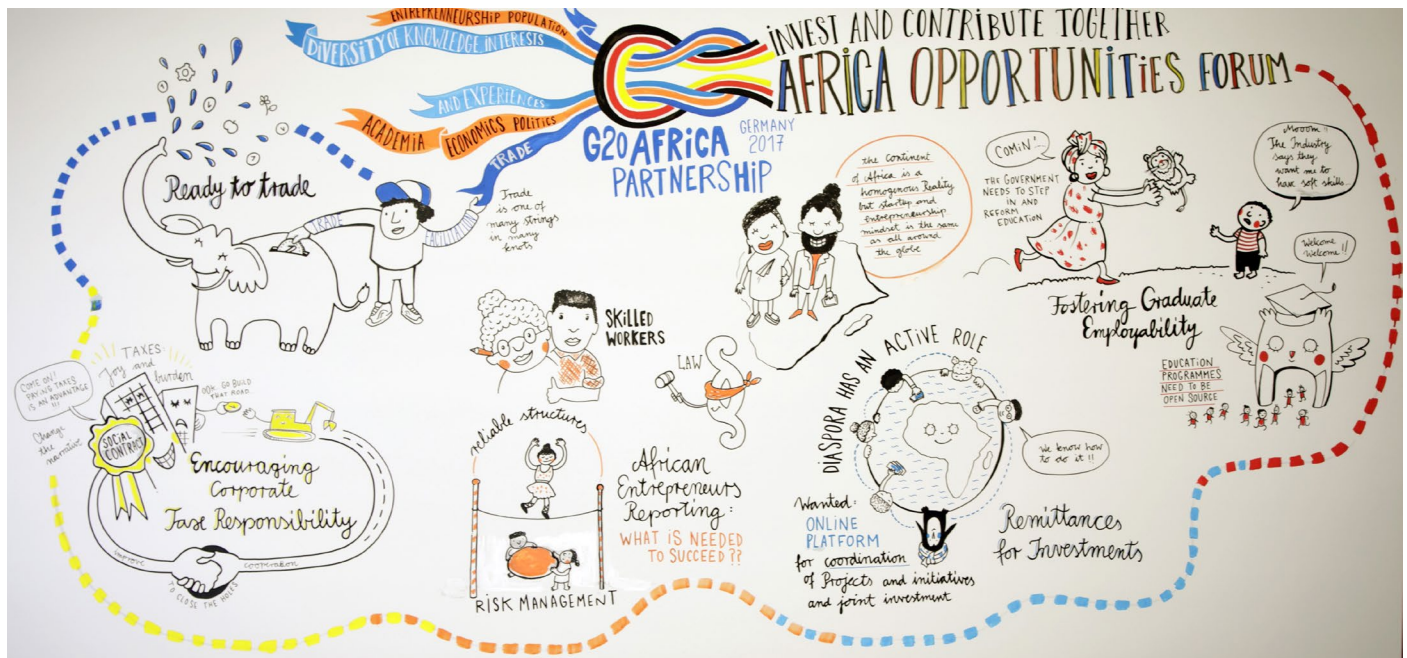 ENTREPRENEURSHIP POPULATION
DIVERSITY OF KNOWLEDGE INTERESTS
AND EXPERIENCES
ACADEMIA ECONOMICS POLITICS
TRADE
INVEST AND CONTRIBUTE TOGETHER
AFRICA OPPORTUNITiES FORUM
G20 AFRICA
PARTNERSHiP
GERMANY
2017
Ready to trade
TRADE
FACILITATION
Trade
is one of
many strings
in many
knots
the Continent
of Africa is a
homogenous Reality
but startup and
entrepreneurship
mindset is the same
as all around
the globe
COMIN'...
THE GOVERNMENT
NEEDS TO STEP
IN AND
REFORM
EDUCATION
Mooom!!
The Industry
says they
want me to
have soft skills...
Welcome
Welcome!!
Fostering Graduate
Employability
EDUCATION
PROGRAMMES
NEED TO BE
OPEN SOURCE
SKILLED
WORKERS
LAW
TAXES:
Joy and
burden
COME ON!
PAYING TAXES
IS AN ADVANTAGE
!!!
Change
the
narrative
SOCIAL
CONTRACT
GO BUILD
THAT ROAD
Encouraging
Corporate
Taxe Responsibility
IMPROVE
COOPERATION
TO CLOSE THE HOLES
reliable structures
RISK MANAGEMENT
African
Entrepreneurs
Reporting:
WHAT IS NEEDED
TO SUCCEED??
DIASPORA HAS AN ACTIVE ROLE
We know how
to do it!!
Wanted:
ONLINE
PLATFORM
for coordination
of Projects and initiatives
and joint investment
Remittances
for Investments